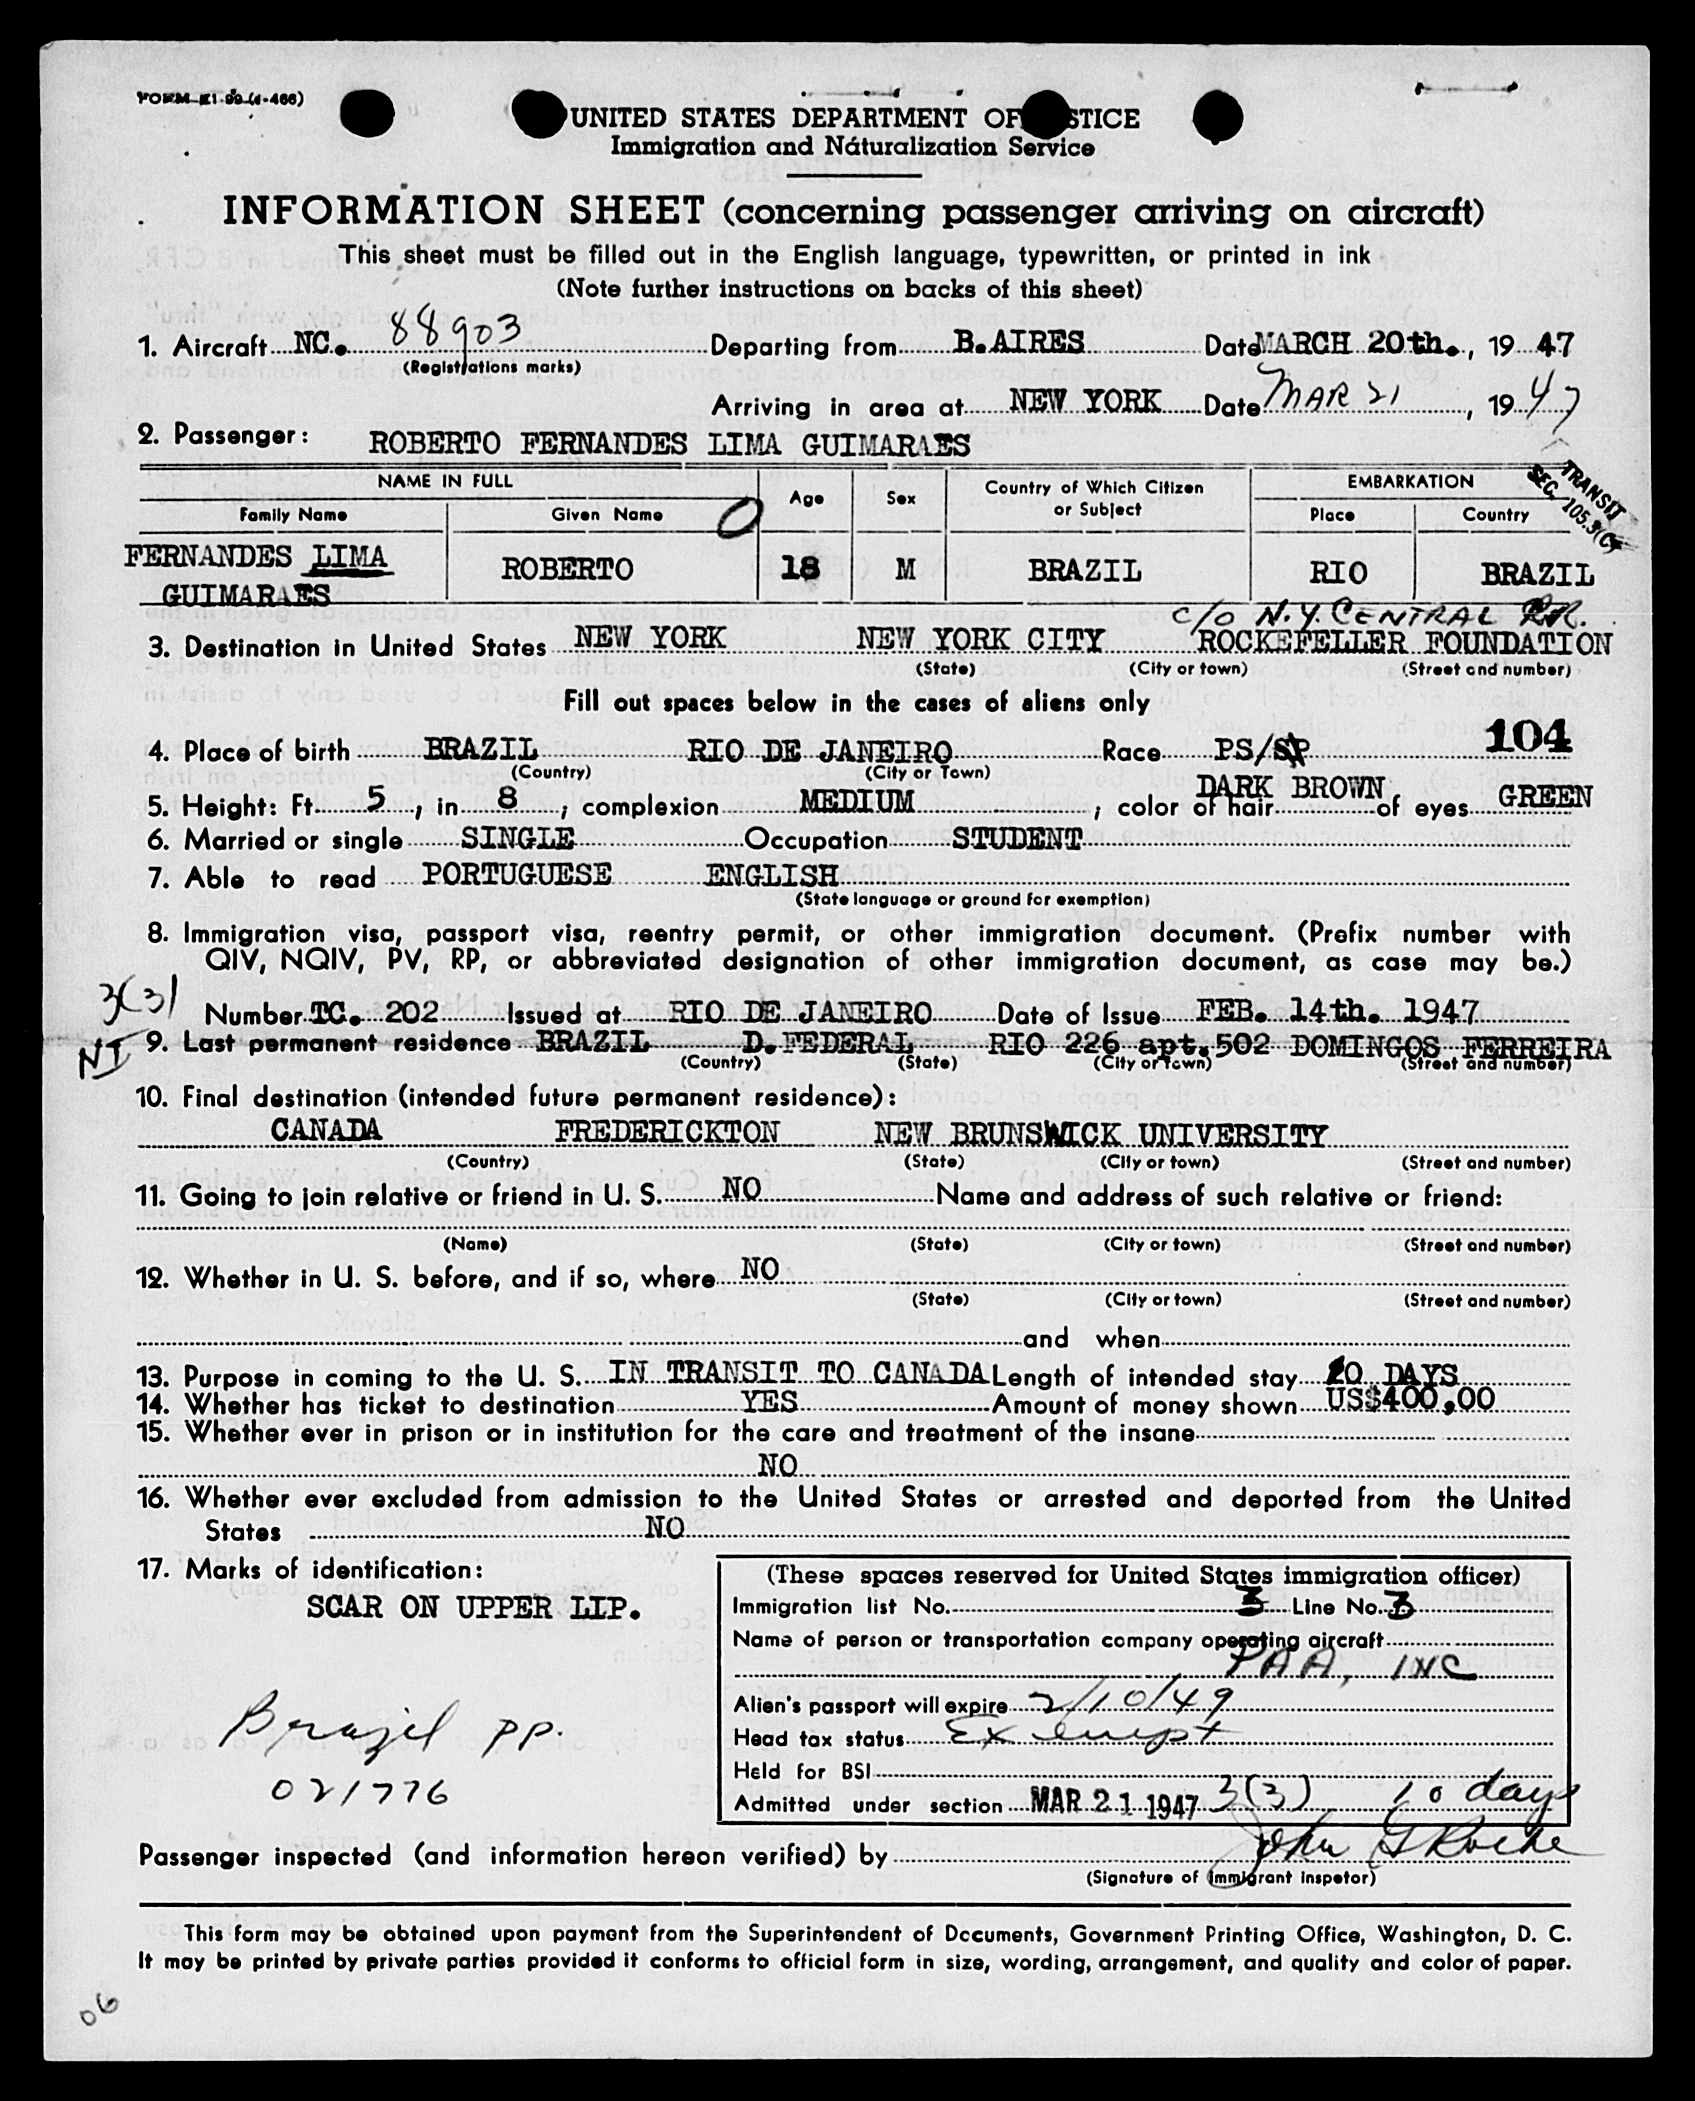 FORM I-99 (I-466)
UNITED STATES DEPARTMENT OF STICE
Immigration and Naturalization Service
INFORMATION SHEET (concerning passenger arriving on aircraft)
This sheet must be filled out in the English language, typewritten, or printed in ink
(Note further instructions on backs of this sheet)
1. Aircraft NC. 88903 Departing from B.AIRES Date MARCH 20th., 1947
(Registrations marks)
Arriving in area at NEW YORK Date MAR 21, 1947
2. Passenger: ROBERTO FERNANDES LIMA GUIMARAES
TRANSIT
SEC. 105.3(C)
NAME IN FULL Age Sex Country of Which Citizen or Subject EMBARKATION
Family Name Given Name Place Country
FERNANDES LIMA GUIMARAES ROBERTO 18 M BRAZIL RIO BRAZIL
c/o N.Y. CENTRAL RR.
3. Destination in United States NEW YORK NEW YORK CITY ROCKEFELLER FOUNDATION
(State) (City or town) (Street and number)
Fill out spaces below in the cases of aliens only
104
4. Place of birth BRAZIL RIO DE JANEIRO Race PS/SP
(Country) (City or Town)
5. Height: Ft. 5, in. 8; complexion MEDIUM; color of hair DARK BROWN of eyes GREEN
6. Married or single SINGLE Occupation STUDENT
7. Able to read PORTUGUESE ENGLISH
(State language or ground for exemption)
8. Immigration visa, passport visa, reentry permit, or other immigration document. (Prefix number with
QIV, NQIV, PV, RP, or abbreviated designation of other immigration document, as case may be.)
3(3)
Number TC. 202 Issued at RIO DE JANEIRO Date of Issue FEB. 14th. 1947
NI
9. Last permanent residence BRAZIL D.FEDERAL RIO 226 apt.502 DOMINGOS FERREIRA
(Country) (State) (City or Town) (Street and number)
10. Final destination (intended future permanent residence):
CANADA FREDERICKTON NEW BRUNSWICK UNIVERSITY
(Country) (State) (City or town) (Street and number)
11. Going to join relative or friend in U. S. NO Name and address of such relative or friend:
(Name) (State) (City or town) (Street and number)
12. Whether in U. S. before, and if so, where NO
(State) (City or town) (Street and number)
and when
13. Purpose in coming to the U. S. IN TRANSIT TO CANADA Length of intended stay 10 DAYS
14. Whether has ticket to destination YES Amount of money shown US$400,00
15. Whether ever in prison or in institution for the care and treatment of the insane
NO
16. Whether ever excluded from admission to the United States or arrested and deported from the United
States NO
17. Marks of identification:
SCAR ON UPPER LIP.
Brazil PP.
021776
(These spaces reserved for United States immigration officer)
Immigration list No. 3 Line No. 3
Name of person or transportation company operating aircraft
PAA, INC
Alien's passport will expire 2/10/49
Head tax status Exempt
Held for BSI
Admitted under section MAR 21 1947 3(3) 10 days
Passenger inspected (and information hereon verified) by John G Roche
(Signature of Immigrant Inspetor)
This form may be obtained upon payment from the Superintendent of Documents, Government Printing Office, Washington, D. C.
It may be printed by private parties provided it conforms to official form in size, wording, arrangement, and quality and color of paper.
06